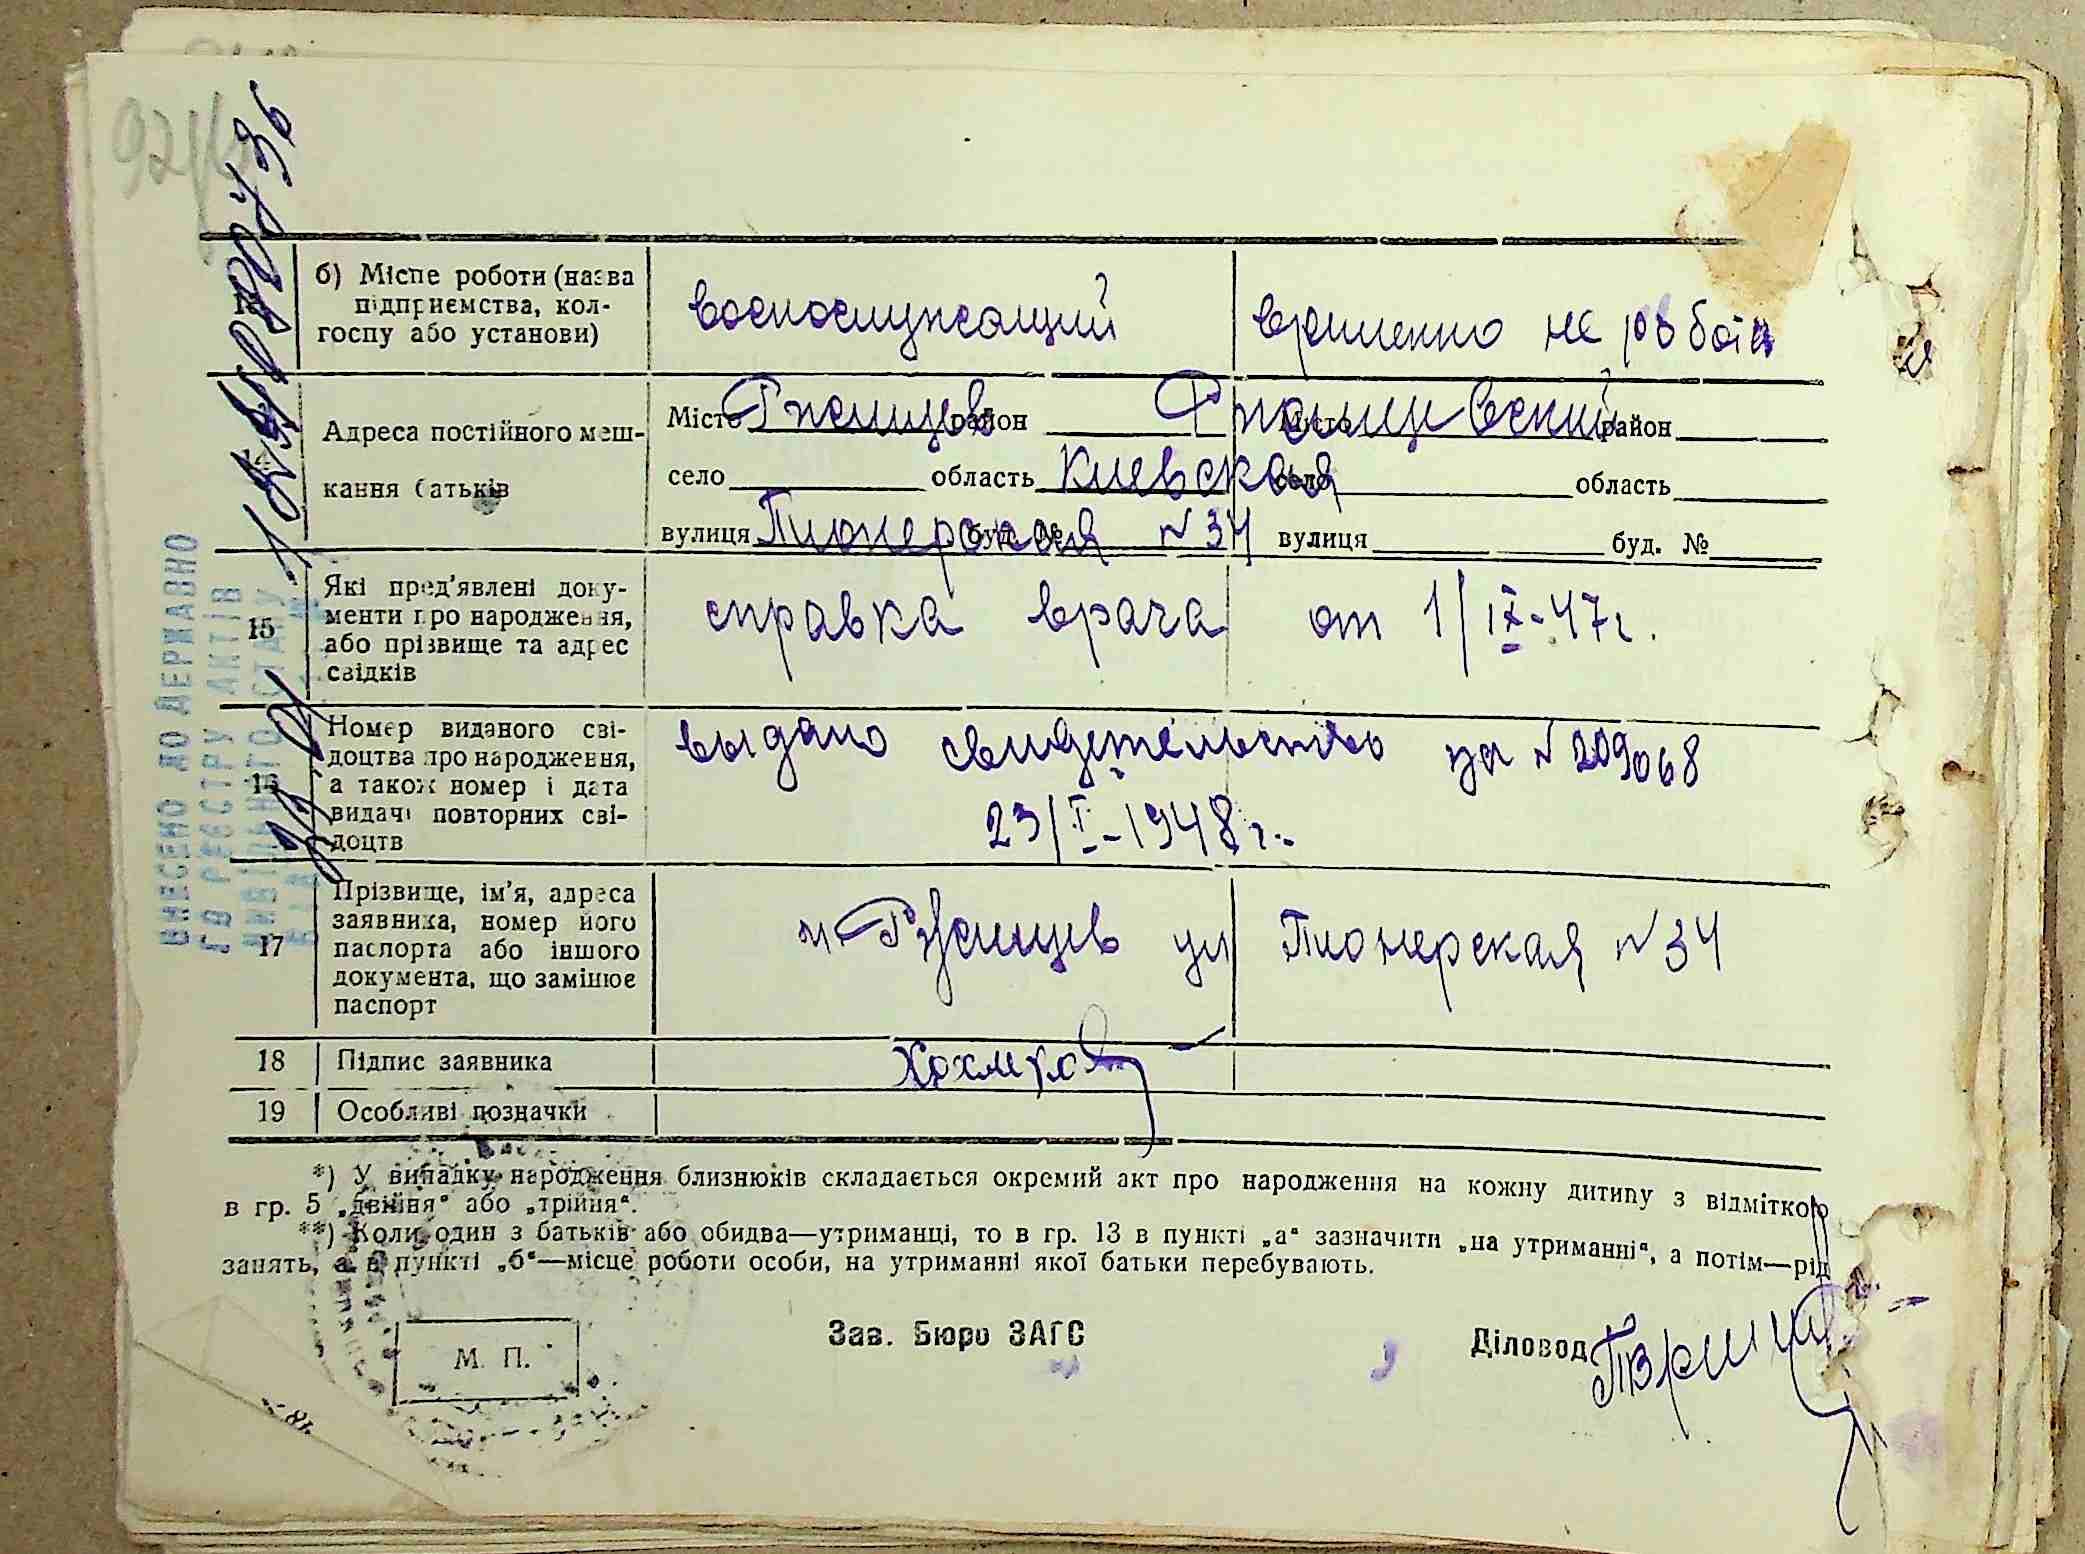 б) Місце роботи (назва
підприємства, кол-
госпу або установи)
военослужащий
временно не робота
Адреса постійного меш-
кання батьків
Місто Ржищев район Ржищевский Місто район
село область Киевская село область
вулиця Пионерская буд. № N 34 вулиця буд. №
15
Які пред'явлені доку-
менти про народження,
або прізвище та адрес
свідків
справка врача от 1/IX-47г.
16
Номер виданого сві-
доцтва про народження,
а також номер і дата
видачі повторних сві-
доцтв
выдано свидетельство за N 209068
23/I-1948г.
17
Прізвище, ім'я, адреса
заявника, номер його
паспорта або іншого
документа, що замінює
паспорт
м. Ржищев ул Пионерская N 34
18 Підпис заявника
19 Особливі позначки
*) У випадку народження близнюків складається окремий акт про народження на кожну дитину з відміткою
в гр. 5 „двійня“ або „трійня“.
**) Коли один з батьків або обидва—утриманці, то в гр. 13 в пункті „а“ зазначити „на утриманні“, а потім—рід
занять, а в пункті „б“—місце роботи особи, на утриманні якої батьки перебувають.
М. П.
Зав. Бюро ЗАГС
Діловод
ВНЕСЕНО ДО ДЕРЖАВНО
ГО РЕЄСТРУ АКТІВ
ЦИВІЛЬНОГО СТАНУ